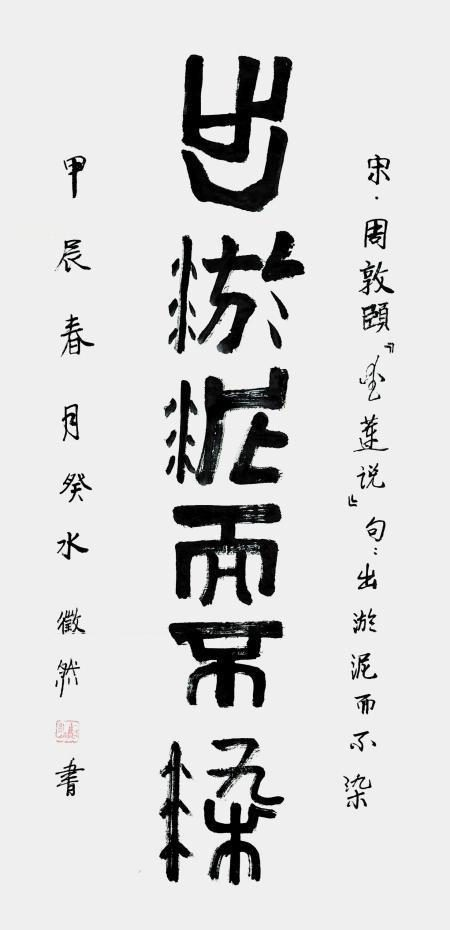 宋·周敦颐『爱莲说』句：出淤泥而不染
出淤泥而不染
甲辰春月癸水徽然書